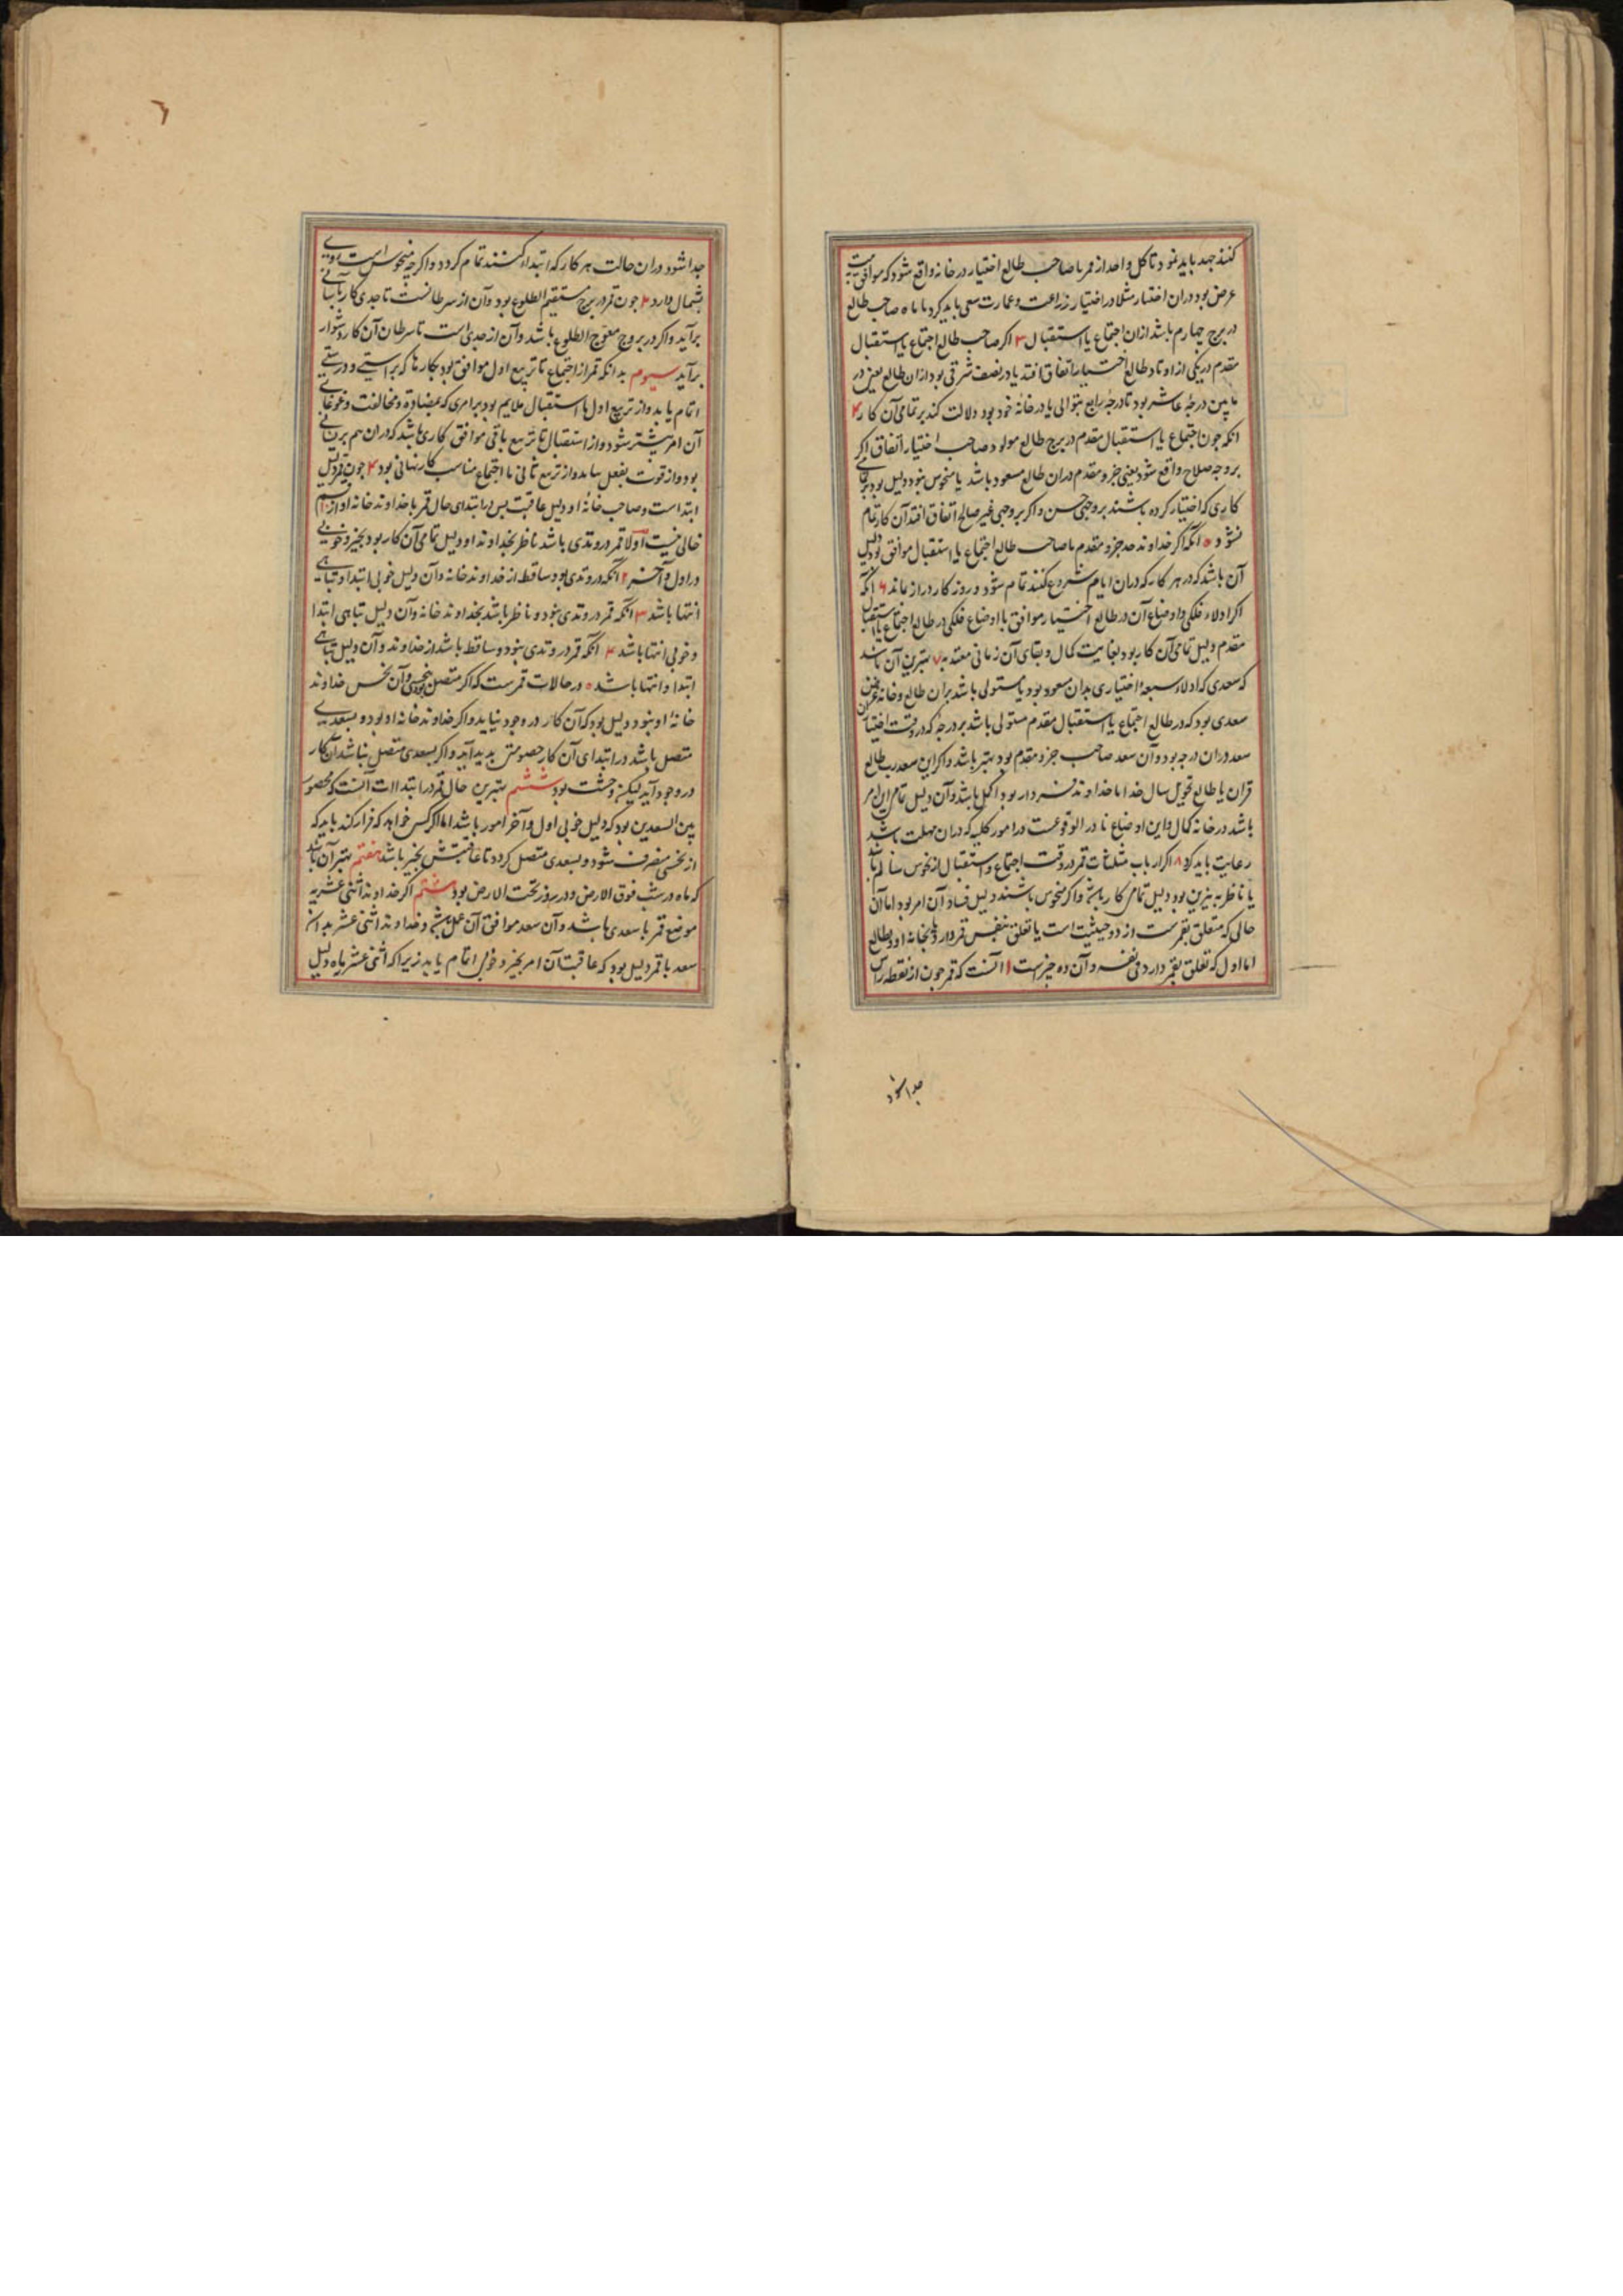 کنند جهد باید نمود تا کل واحد از قمر با صاحب طالع اختیار در خانه واقع شود که موافق
عرض بود دران اختیار مثلا در اختیار زراعت و عمارت سعی باید کرد تا ماه صاحب طالع
در برج چهارم باشد ازان اجتماع یا استقبال ۳ اکر صاحب طالع اجتماع یا استقبال
مقدم در یکی از اوتاد طالع اختیار اتفاق افتد یا در نصف شرقی بود ازان طالع یعنی در
ما بین درجهٔ عاشر بود تا درجهٔ رابع بتوالی یا در خانهٔ خود بود دلالت کند بر تمامی آن کار ۴
انکه چون اجتماع یا استقبال مقدم در برج طالع مولود صاحب اختیار اتفاق اکر
بر وجه صلاح واقع شود یعنی جزو مقدم دران طالع مسعود باشد یا منحوس نبود دلیل بود
کاری که اختیار کرده باشند بر وجهی حسن و اکر بر وجهی غیر صالح اتفاق افتد آن کار تمام
نشود ۵ انکه اکر خداوند جزو مقدم با صاحب طالع اجتماع یا استقبال موافق بود دلیل
آن باشد که در هر کار که دران ایام شروع کنند تمام شود و روزکار دراز بماند ۶ انکه
اکر ادلاء فلکی و اوضاع آن در طالع اختیار موافق با اوضاع فلکی در طالع اجتماع یا استقبال
مقدم دلیل تمامی آن کار بود بغایت کمال و بقای آن زمانی معتد به ۷ بهترین آن باشد
که سعدی که ادلاء سبعهٔ اختیاری بدان مسعود بود یا مستولی باشد بران طالع و خانه غرض
سعدی بود که در طالع اجتماع یا استقبال مقدم مستولی باشد بر درجه که در وقت اختیار
سعد دران درجه بود و آن سعد صاحب جزو مقدم بود بهتر باشد و اکر این سعد رب طالع
قران یا طالع تحویل سال خدا یا خداوند فردار بود اکمل باشد و آن دلیل تمام این امر
باشد در خانه کمال و این اوضاع نادر الوقوعست در امور کلیه که دران مهلت باشد
رعایت باید کرد ۸ اکر ارباب مثلثات قمر در وقت اجتماع و استقبال از نحوس سالم باشد
یا ناظر به نیرین بود دلیل تمامی کار باشد و اکر منحوس باشند دلیل فساد آن امر بود اما آن
حالی که متعلق بقمرست از دو حیثیت است یا تعلق بنفس قمر دارد یا بخانه او و بطالع
اما اول که تعلق بقمر دارد فی نفسه و آن ده چیز است ۱ آنست که قمر چون از نقطه راس
جدا شود
جدا شود دران حالت هر کار که ابتداء کنند تمام کردد و اکرچه منحوس است روی
بشمال دارد ۲ چون قمر در برج مستقیم الطلوع بود و آن از سرطانست تا جدی کار بآسانی
برآید و اکر در بروج معوج الطلوع باشد و آن از جدی است تا سرطان آن کار دشوار
برآید سیوم بدانکه قمر از اجتماع تا تربیع اول موافق بود بکارها که براستی و درستی
اتمام یابد و از تربیع اول تا استقبال ملایم بود برامری که بمضادة و مخالفت و غوغای
آن امر بیشتر شود و از استقبال تا تربیع باقی موافق کاری باشد که دران هم
بود و از قوت بفعل بیاید و از تربیع ثانی تا اجتماع مناسب کار نهانی بود ۴ چون قمر دلیل
ابتداست و صاحب خانهٔ او دلیل عاقبت پس در ابتدای حال قمر با خداوند خانه او از
خالی نیست اولا قمر در وتدی باشد ناظر بخداوند او دلیل تمامی آن کار بود بخیر و خوبی
در اول و آخر ۲ آنکه در وتدی بود ساقط از خداوند خانه و آن دلیل خوبی ابتدا و تباهی
انتها باشد ۳ انکه قمر در وتدی نبود و ناظر باشد بخداوند خانه و آن دلیل تباهی ابتدا
و خوبی انتها باشد ۴ انکه قمر در وتدی نبود و ساقط باشد از خداوند و آن دلیل تباهی
ابتدا و انتها باشد ۵ در حالات قمرست که اکر متصل بنحسی و آن نحس خداوند
خانه او نبود دلیل بود که آن کار در وجود نیاید و اکر خداوند خانه او بود و بسعدی
متصل باشد در ابتدای آن کار خصومتی پدید آید و اکر بسعدی متصل نباشد آن کار
در وجود آید لیکن وحشت بود ششم بهترین حال قمر در ابتداات آنست که محصور
بین السعدین بود که دلیل خوبی اول و آخر امور باشد اما اکر کسی خواهد که فرار کند باید که
از نحسی منصرف شود و بسعدی متصل کردد تا عاقبتش بخیر باشد هفتم بهتر آن باشد
که ماه در شب فوق الارض و در روز تحت الارض بود هشتم اکر خداوند اثنی عشریه
موضع قمر با سعدی باشد و آن سعد موافق آن عمل باشد و خداوند اثنی عشر بدان
سعد باقمر دلیل بود که عاقبت آن امر بخیر و خوبی اتمام یابد زیرا که اثنی عشر یاه دلیل